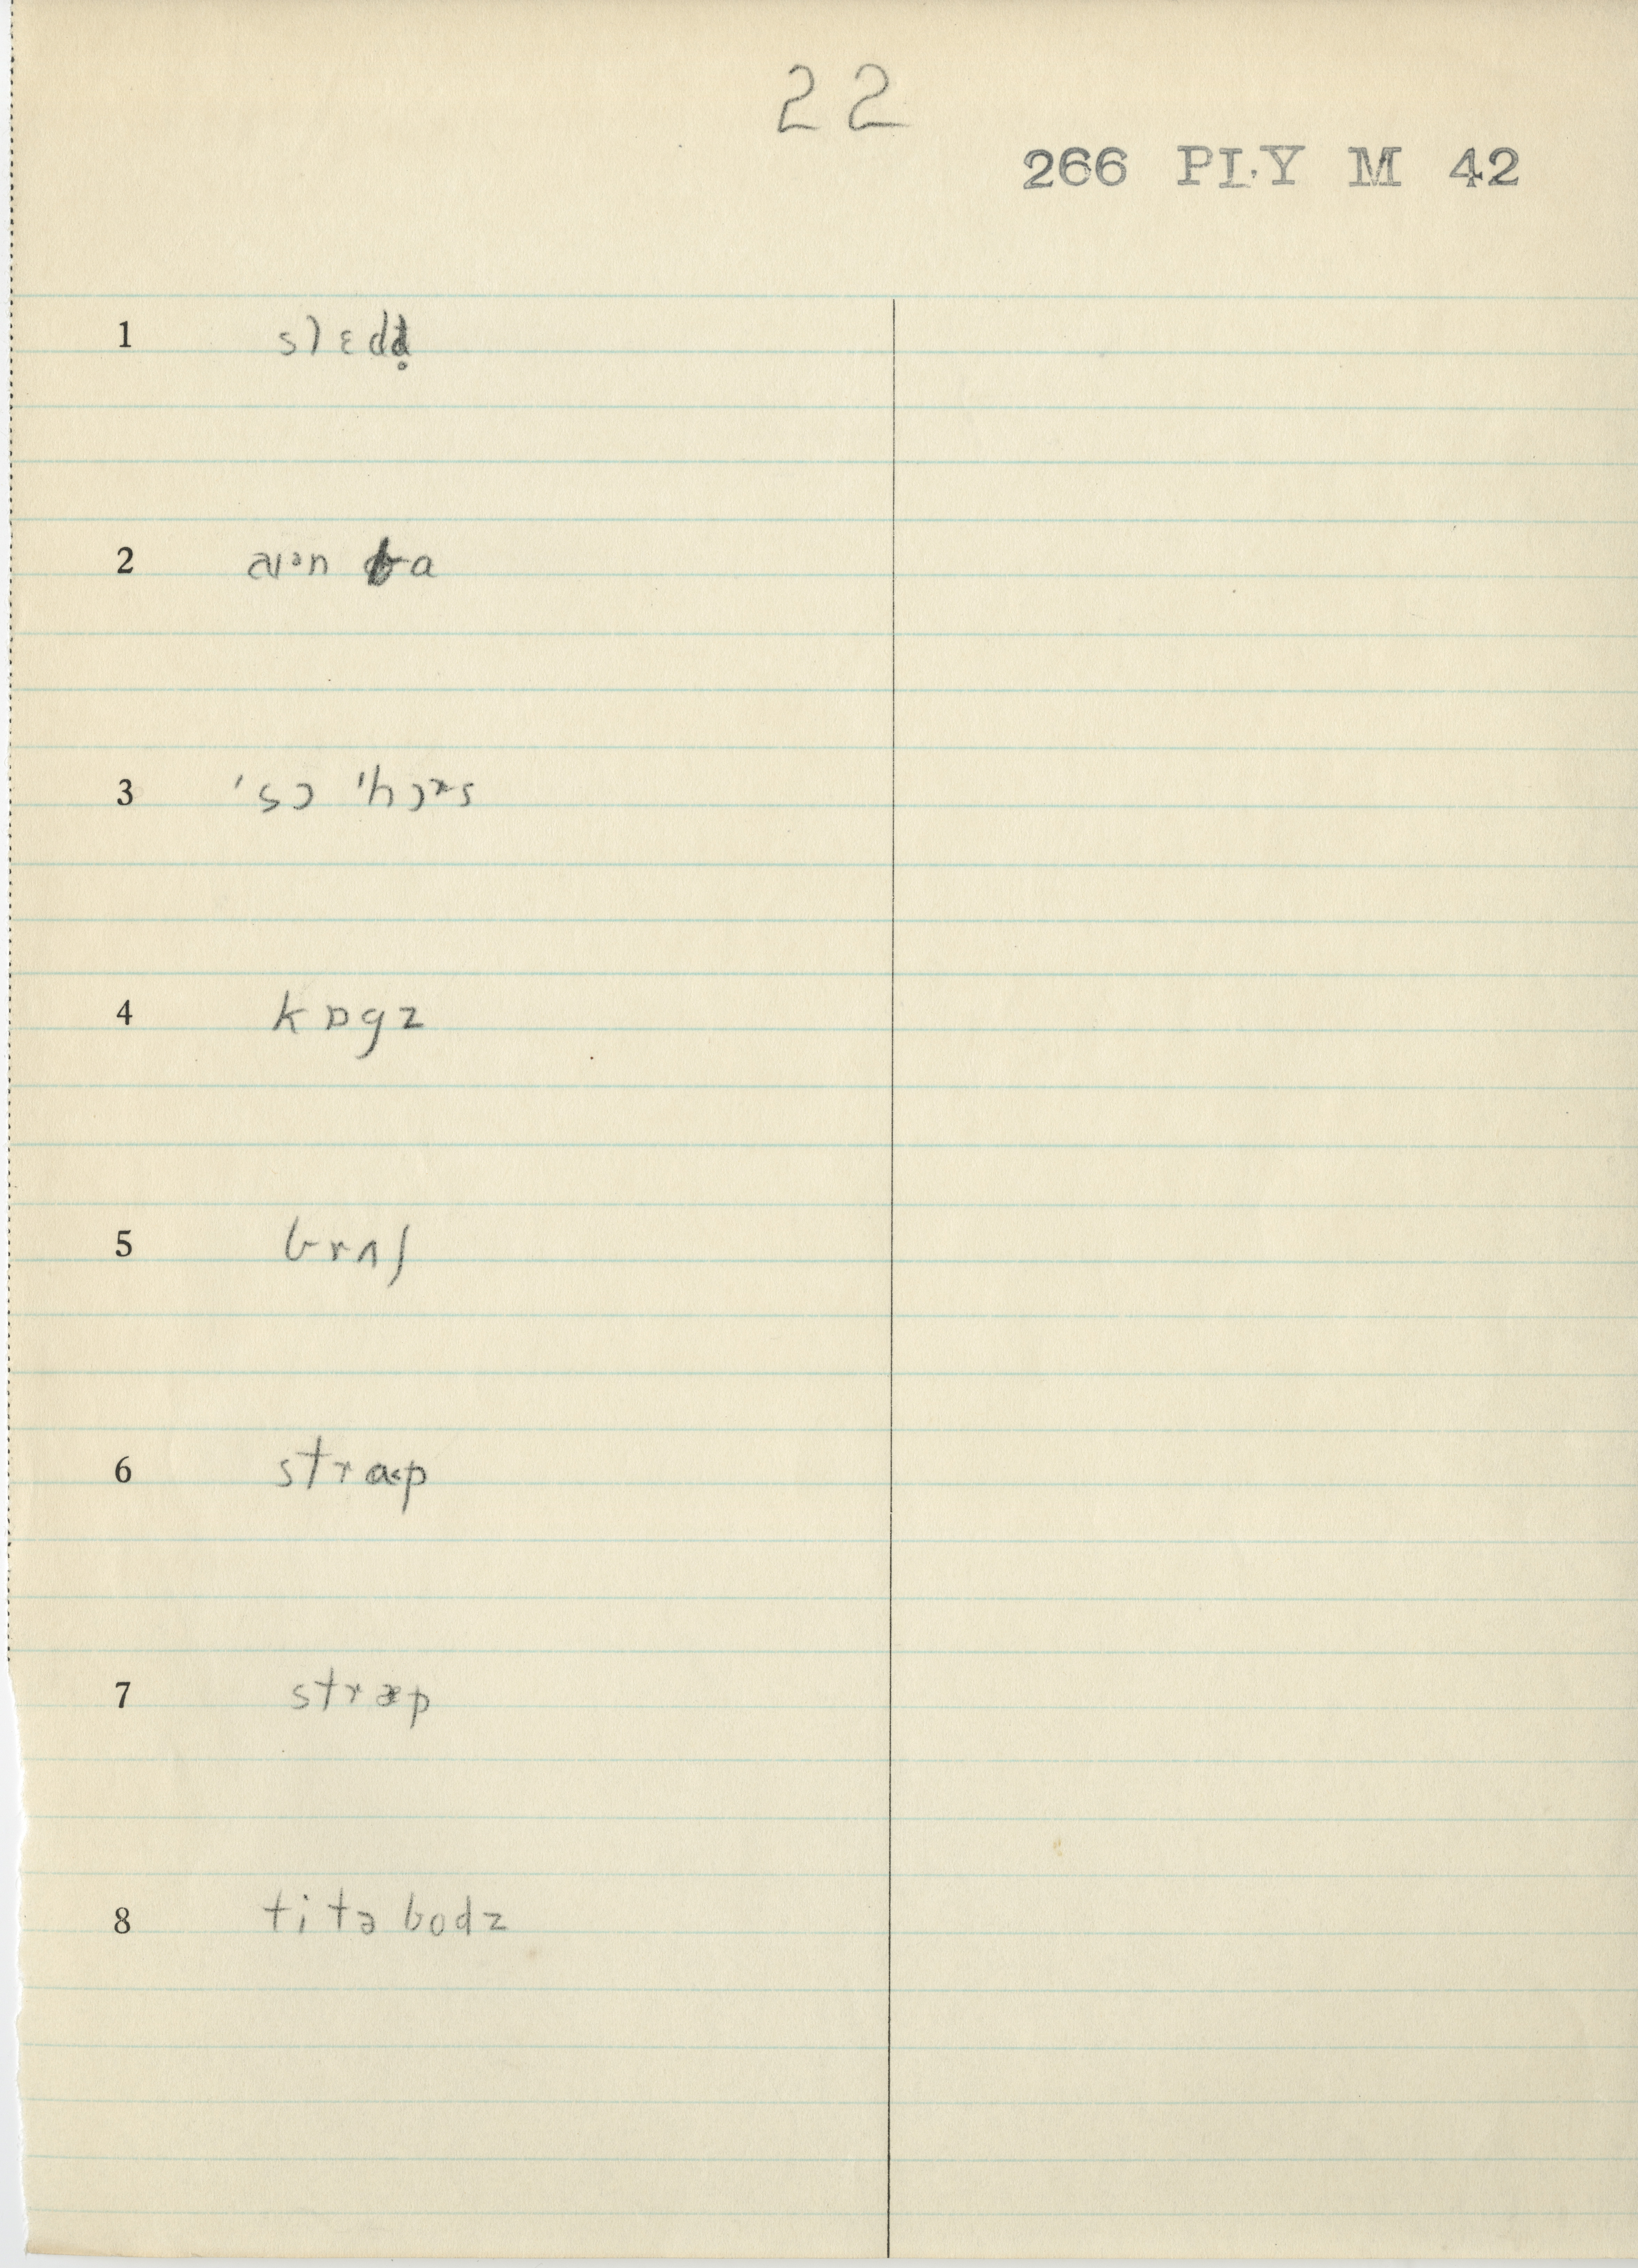 22
266 PLY M 42
1 slɛdd̥
2 aɪᵊn ba
3 ˈsɔ ˈhɔɤs
4 kɒgz
5 brʌʃ
6 stra˂p
7 stræp
8 titəbodz